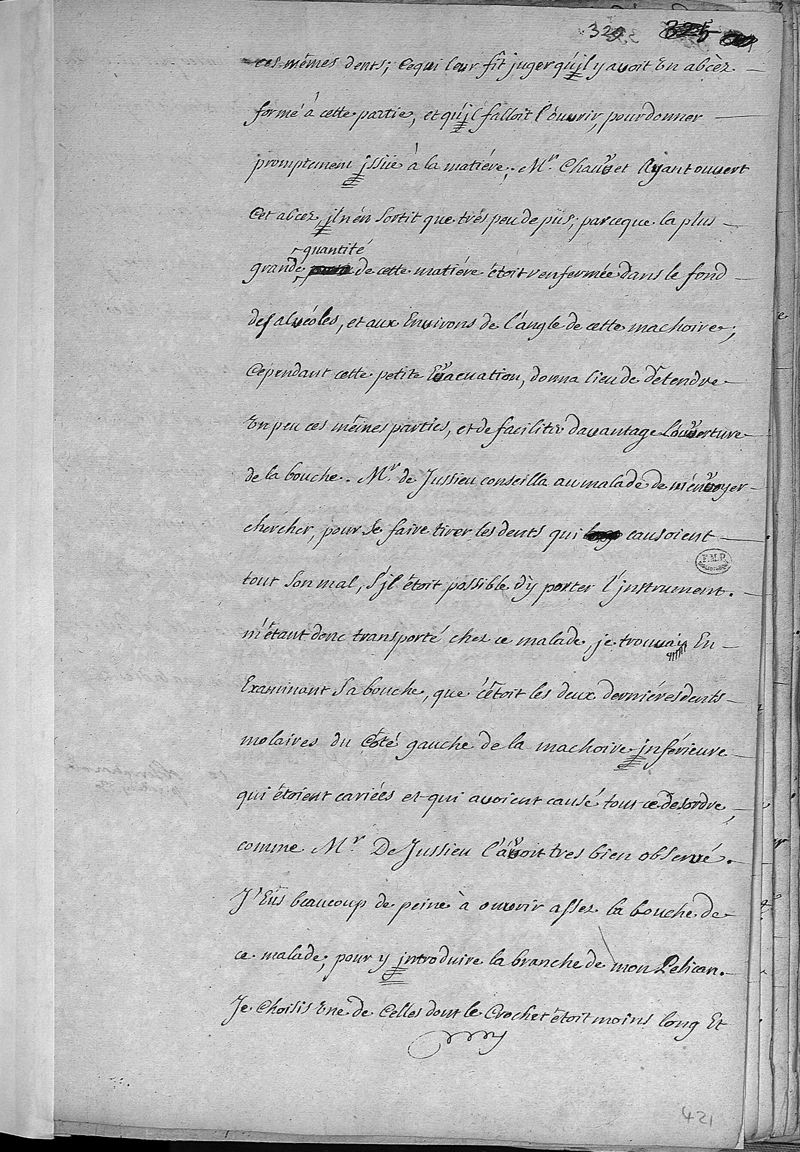 329 325
ces mêmes dents; Ce qui leur fit juger qu'jl y avoit En abcèz
formé à cette partie, et qu'jl falloit l'ouvrir, pour donner
promptement jssüe à la matiére; Mr. Chauvet Ayant ouvert
Cet abcez, jl n'en sortit que trés peu de püs; parceque la plus
quantité
grande de cette matiére étoit renfermée dans le fond
des alvéoles, et aux Environs de l'angle de cette machoire;
Cépendant cette petite Evacuation, donna lieu de détendre
En peu ces mêmes parties, et de faciliter davantage l'ouverture
de la bouche. Mr. de Jussieu conseilla au malade de m'énvoyer
chercher, pour se faire tirer les dents qui causoient
tout Son mal, s'jl étoit possible d'y porter l'jnstrument.
m'étant donc transporté chez ce malade, je trouvai En
Examinant Sa bouche, que c'étoit les deux derniéres dents
molaires du Côté gauche de la machoire jnférieure
qui étoient cariées et qui avoient causé tout ce desordre,
comme Mr De Jussieu l'avoit tres bien observé.
J'Eüs beaucoup de peine à ouvrir assez la bouche de
ce malade, pour y jntroduire la branche de mon Pelican.
Je Choisis Une de Celles dont le Crochet étoit moins long Et
421